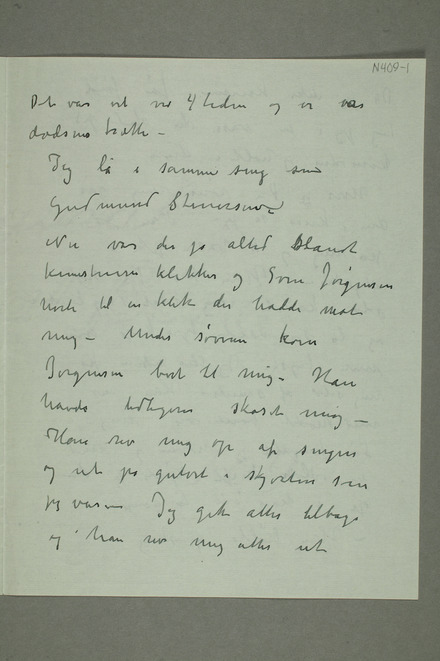 N409-1
Det var vel ved 4 tiden og vi var
dødsens trætte –
Jeg lå i samme seng som
Gudmund Stenersen
Nu var der jo altid blandt
kunstnerne klikker og Sven Jørgensen
hørte til en klik der hadde mot
mig – Under søvnen kom
Jørgensen bort til mig – Han
havde tidligere skoset mig –
Han rev mig op af sengen
og ut på gulvet i skjorten som
jeg var – Jeg gik atter tilbage
og han rev mig atter ut